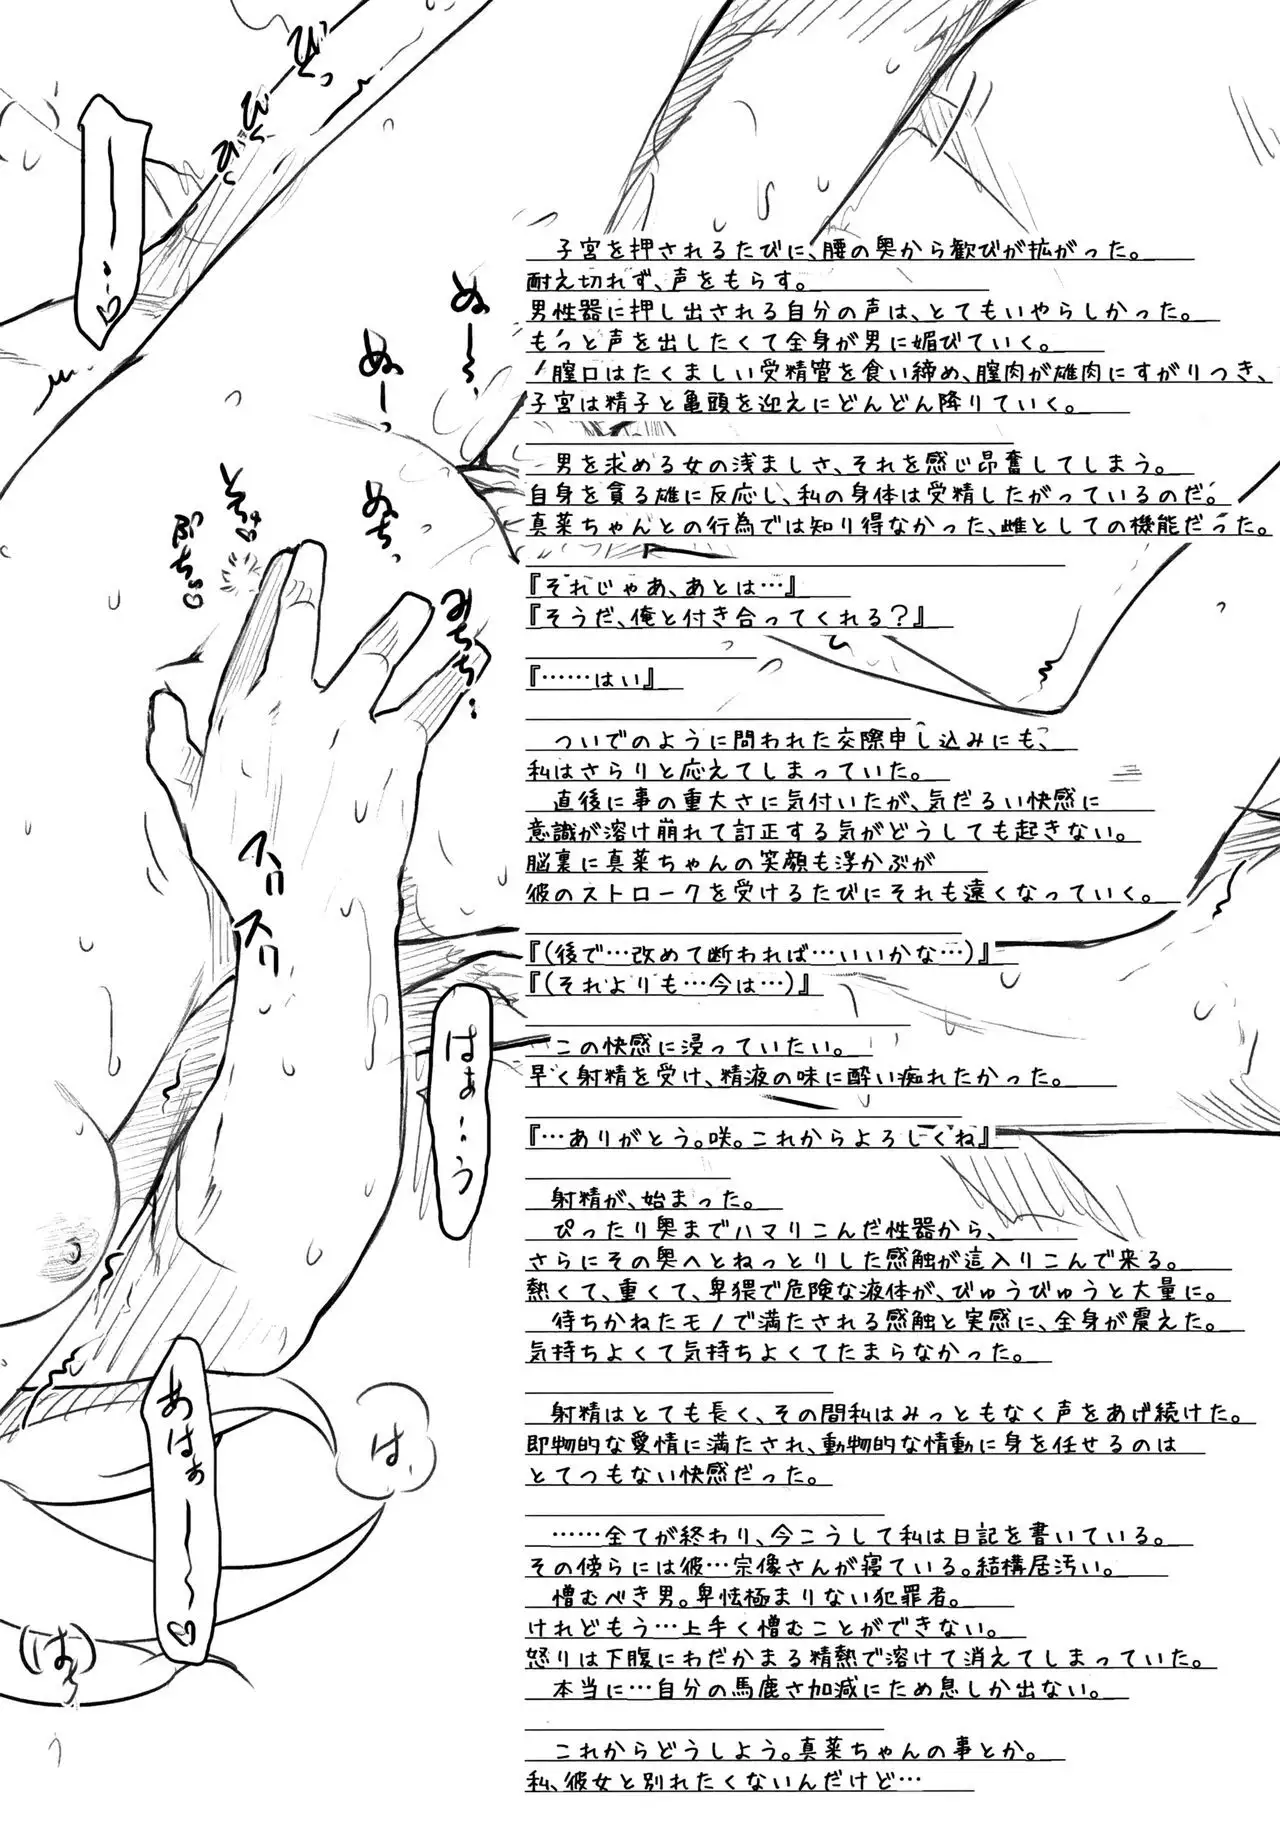 子宮を押されるたびに、腰の奥から歓びが拡がった。
耐え切れず、声をもらす。
男性器に押し出される自分の声は、とてもいやらしかった。
もっと声を出したくて全身が男に媚びていく。
膣口はたくましい受精管を食い締め、膣肉が雄肉にすがりつき、
子宮は精子と亀頭を迎えにどんどん降りていく。
男を求める女の浅ましさ、それを感じ昂奮してしまう。
自身を貪る雄に反応し、私の身体は受精したがっているのだ。
真菜ちゃんとの行為では知り得なかった、雌としての機能だった。
『それじゃあ、あとは…』
『そうだ、俺と付き合ってくれる？』
『……はい』
ついでのように問われた交際申し込みにも、
私はさらりと応えてしまっていた。
直後に事の重大さに気付いたが、気だるい快感に
意識が溶け崩れて訂正する気がどうしても起きない。
脳裏に真菜ちゃんの笑顔も浮かぶが
彼のストロークを受けるたびにそれも遠くなっていく。
『(後で…改めて断われば…いいかな…)』
『(それよりも…今は…)』
この快感に浸っていたい。
早く射精を受け、精液の味に酔い痴れたかった。
『…ありがとう。咲。これからよろしくね』
射精が、始まった。
ぴったり奥までハマりこんだ性器から、
さらにその奥へとねっとりした感触が這入りこんで来る。
熱くて、重くて、卑猥で危険な液体が、びゅうびゅうと大量に。
待ちかねたモノで満たされる感触と実感に、全身が震えた。
気持ちよくて気持ちよくてたまらなかった。
射精はとても長く、その間私はみっともなく声をあげ続けた。
即物的な愛情に満たされ、動物的な情動に身を任せるのは
とてつもない快感だった。
……全てが終わり、今こうして私は日記を書いている。
その傍らには彼…宗像さんが寝ている。結構居汚い。
憎むべき男。卑怯極まりない犯罪者。
けれどもう…上手く憎むことができない。
怒りは下腹にわだかまる精熱で溶けて消えてしまっていた。
本当に…自分の馬鹿さ加減にため息しか出ない。
これからどうしよう。真菜ちゃんの事とか。
私、彼女と別れたくないんだけど…
ぬ〜〜っ
ぬ〜っ
ぬちっ
とちゅ♡
ぶちっ♡
みちちっ
スリ
スリ
はぁ…う
あはぁ〜〜〜♡
は、
(はぁっ)